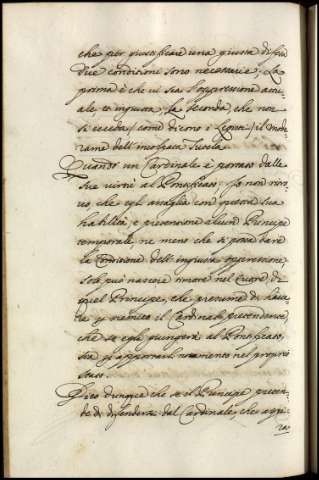 che per giustificare una giusta difesa
due condizioni sono necessarie; La
prima è che vi sia l'oppressione attu-
ale, et ingiusta; La seconda, che non
si ecceda /come dicono i Legisti/ il mode-
rame dell'incolpata tutela.
Quando un Cardinale è portato dalle
sue virtù al Pontificato; Io non ritro,
vo, che egli assaglia con questa sua
habilità, e pretensione alcun Principe
temporale, ne meno che si possa dare
la condizione dell'ingiusta oppressione,
solo può nascere timore nel Cuore di
quel Principe, che presume di have,
re nemico il Cardinale pretendente
che se egli giungerà al Pontificato,
sia p apportarli nocumento nel proprio
stato.
Dico dunque che se il Principe preten-
de di difendersi dal Cardinale, che aspi-
ra